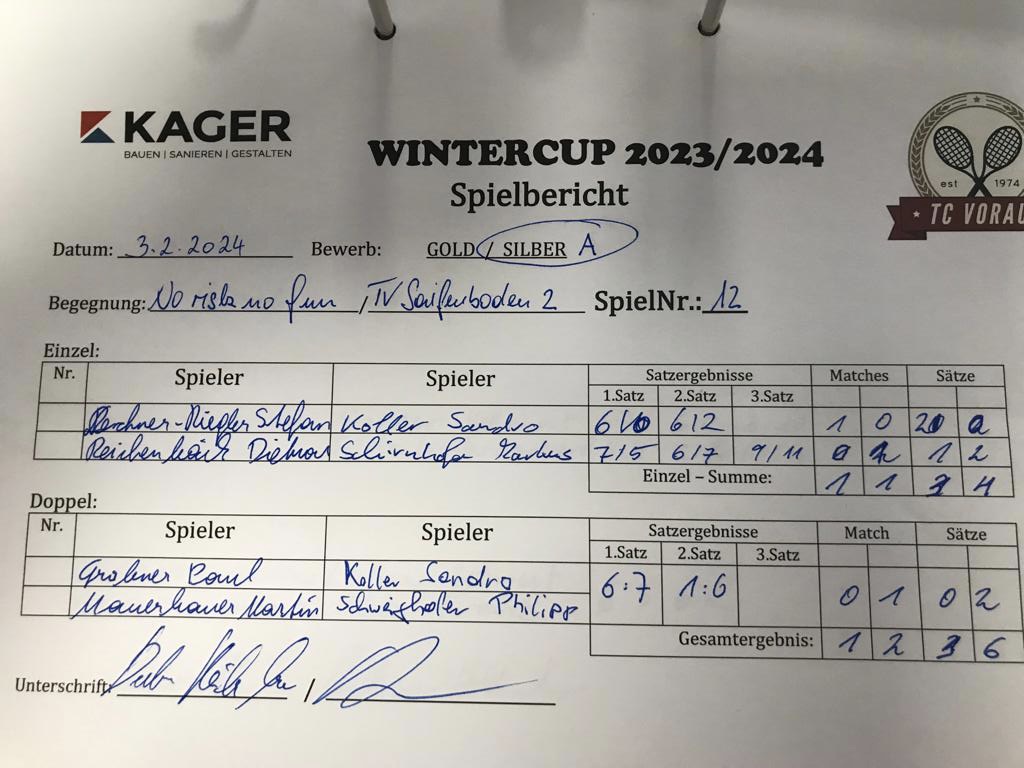 KAGER
BAUEN | SANIEREN | GESTALTEN
WINTERCUP 2023/2024
Spielbericht
est 1974
TC VORAU
Datum: 3.2.2024 Bewerb: GOLD / SILBER A
Begegnung: No risk no fun / TV Saifenboden 2 SpielNr.: 12
Einzel:
Nr. Spieler Spieler Satzergebnisse Matches Sätze
1.Satz 2.Satz 3.Satz
Stefan Koller Sandro 6/0 6/2 1 0 2 0
7/5 6/7 9/11 0 1 1 2
Einzel – Summe: 1 1 3 4
Doppel:
Nr. Spieler Spieler Satzergebnisse Match Sätze
1.Satz 2.Satz 3.Satz
Koller Sandro 6:7 1:6 0 1 0 2
Mauerbauer Martin Schweighofer Philipp
Gesamtergebnis: 1 2 3 6
Unterschrift: /